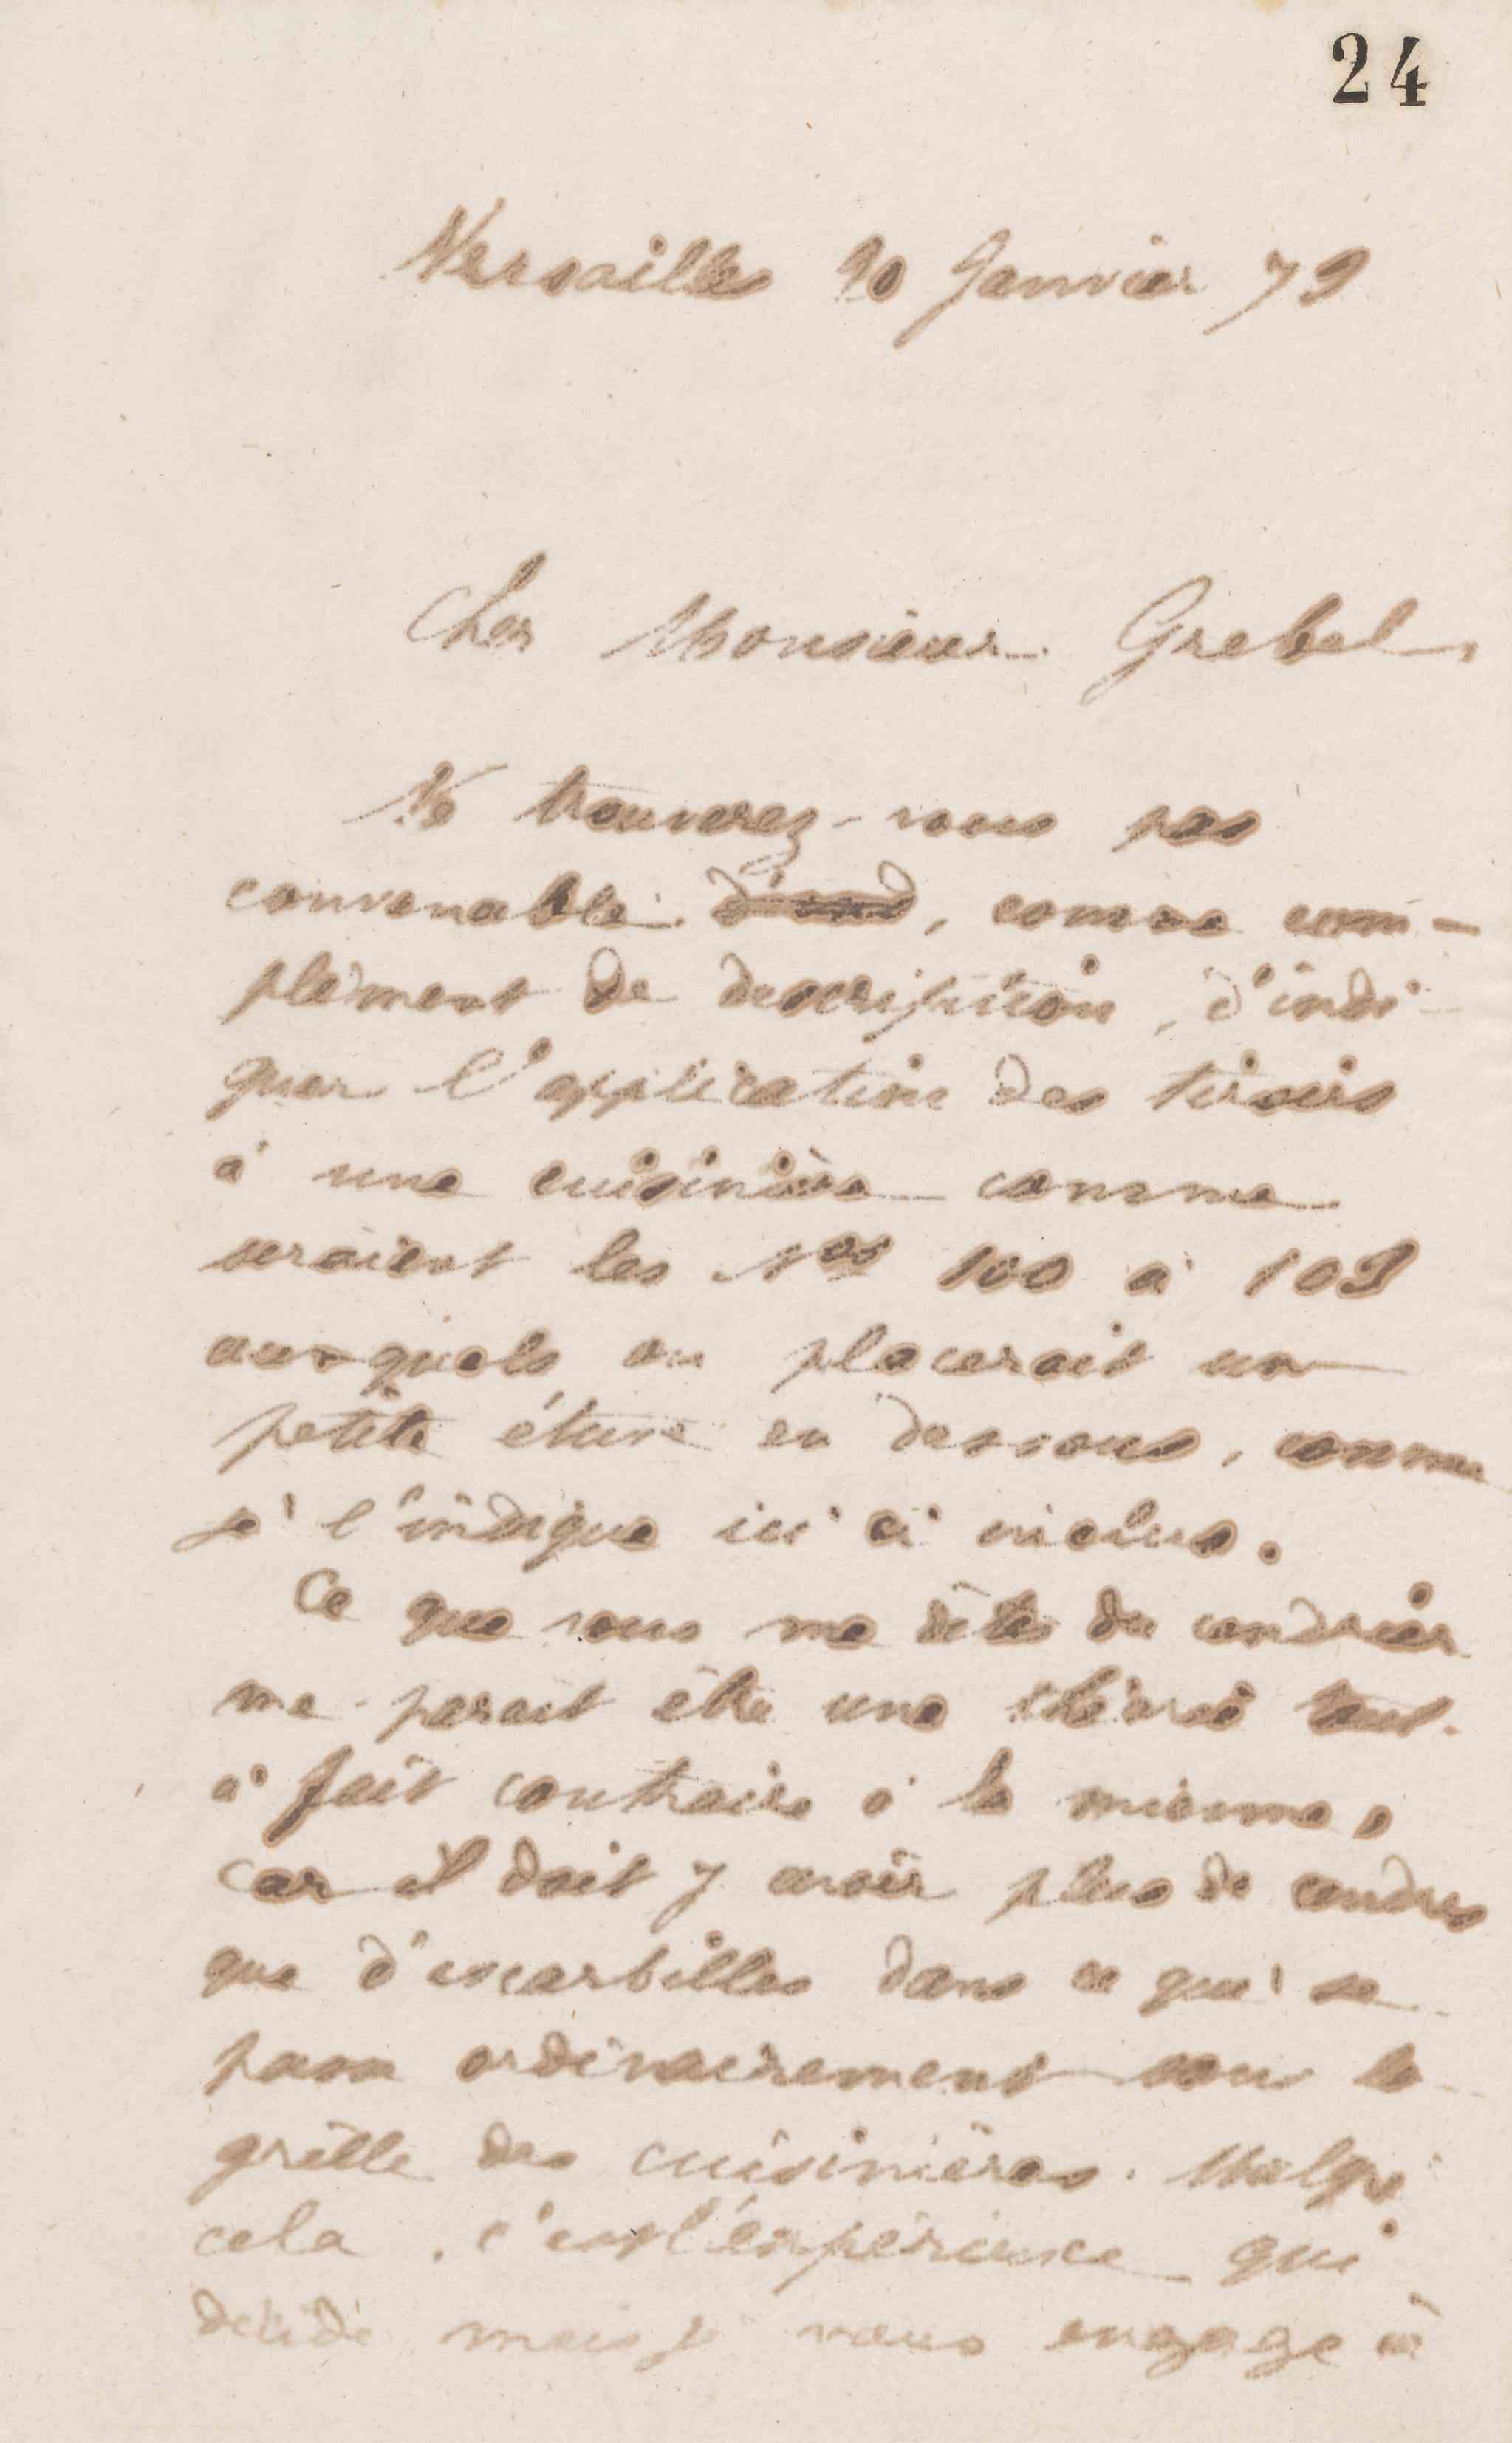 24
Versailles 30 Janvier 79
Cher Monsieur Grebel
Ne trouverez-vous pas
convenable, comme com-
plément de description, d'indi-
quer l'application des tiroirs
à une cuisinière comme
seraient les Nos 100 à 103
auxquels on placerait un
petite étuve en dessous, comme
je l'indique ici ci inclus.
Ce que vous me dites du cendrier
me parait être une théorie tout
à fait contraire à la mienne,
car il doit y avoir plus de cendres
que d'escarbilles dans ce qui se
passe ordinairement sous la
grille des cuisinières. Malgré
cela, c'est l'expérience qui
décide mais je vous engage à